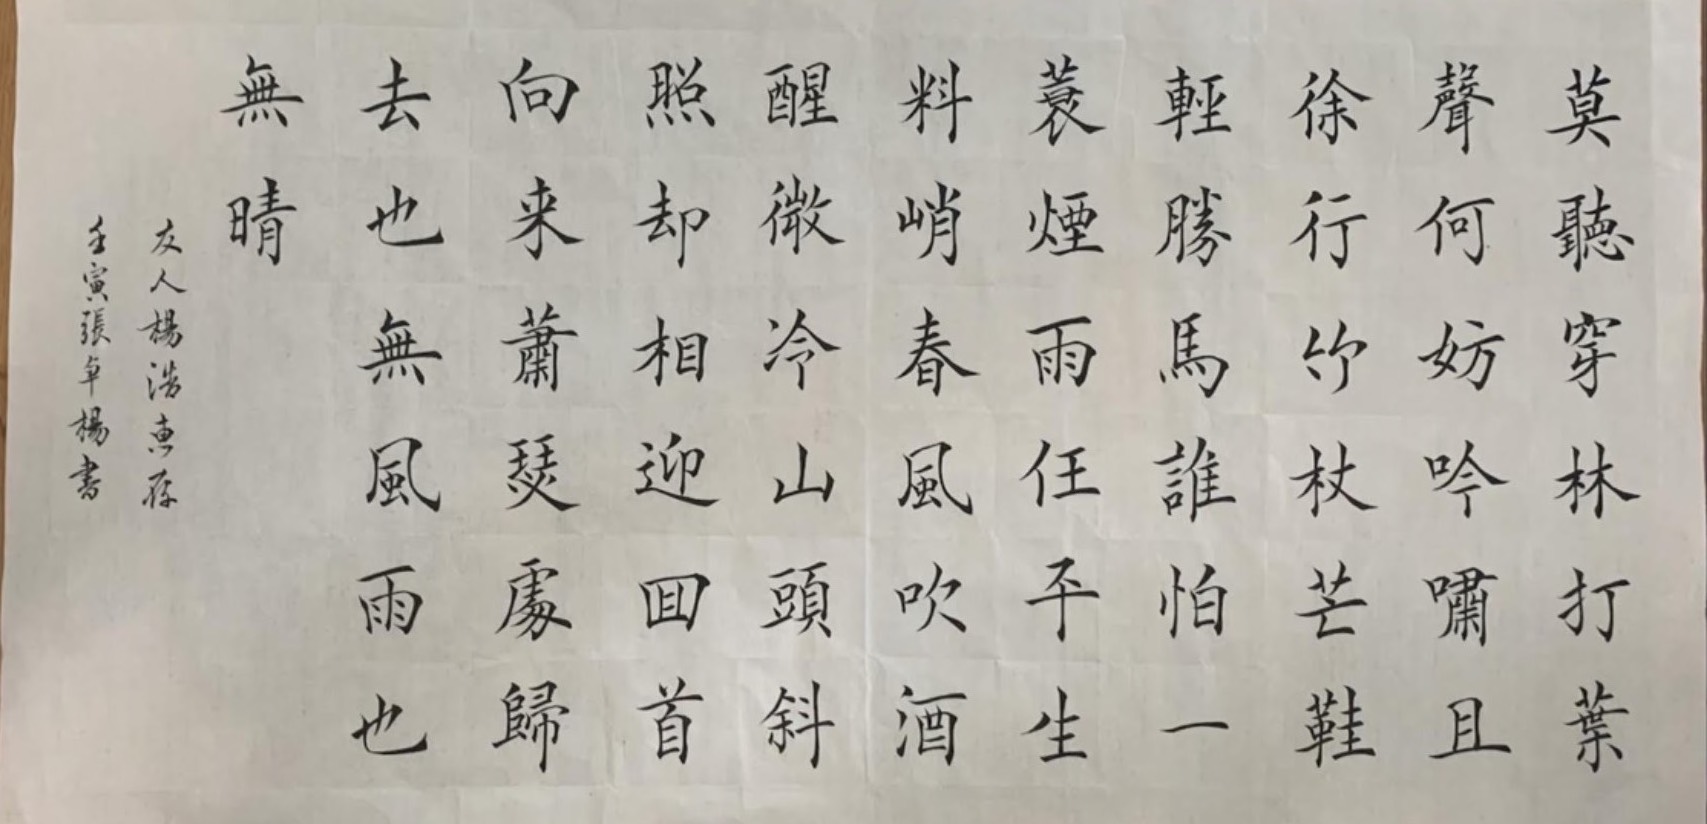 莫聽穿林打葉
聲何妨吟嘯且
徐行竹杖芒鞋
輕勝馬誰怕一
蓑煙雨任平生
料峭春風吹酒
醒微冷山頭斜
照却相迎回首
向来蕭瑟處歸
去也無風雨也
無晴
友人楊浩惠存
壬寅張卓楊書